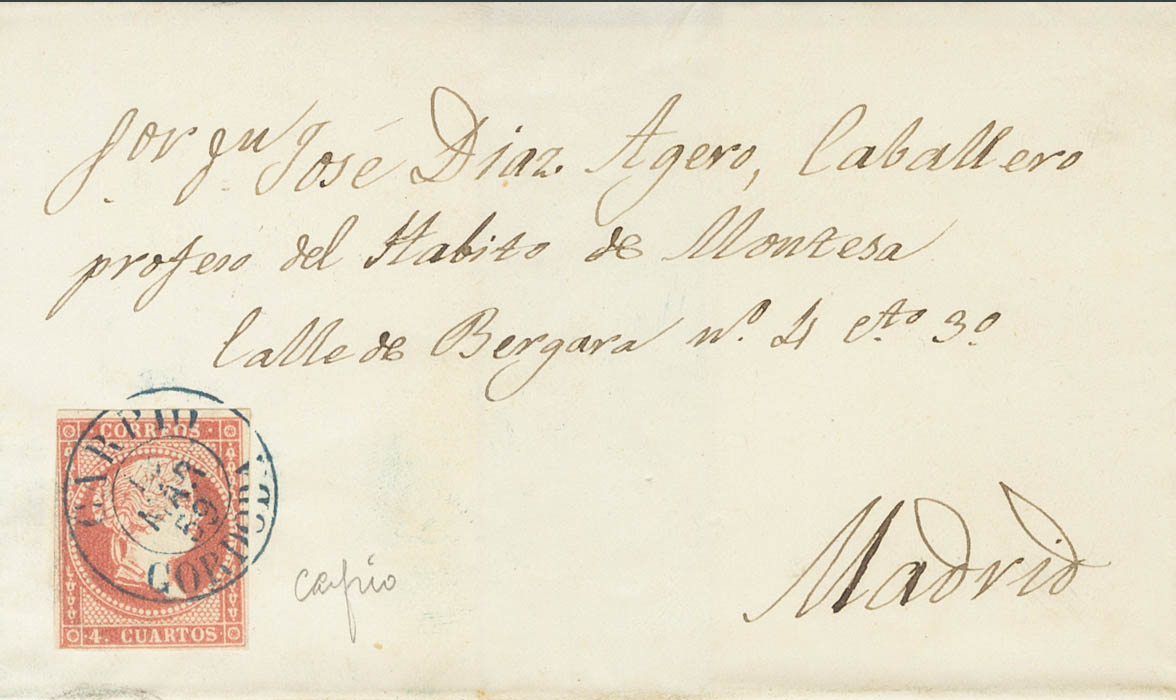 Sor Dn José Diaz Agero, Caballero
profeso del Habito de Montesa
Calle de Bergara nº. 4 cto 3º.
CARPIO
CORREOS
MAR
59
CORDOBA
4. CUARTOS
carpio
Madrid